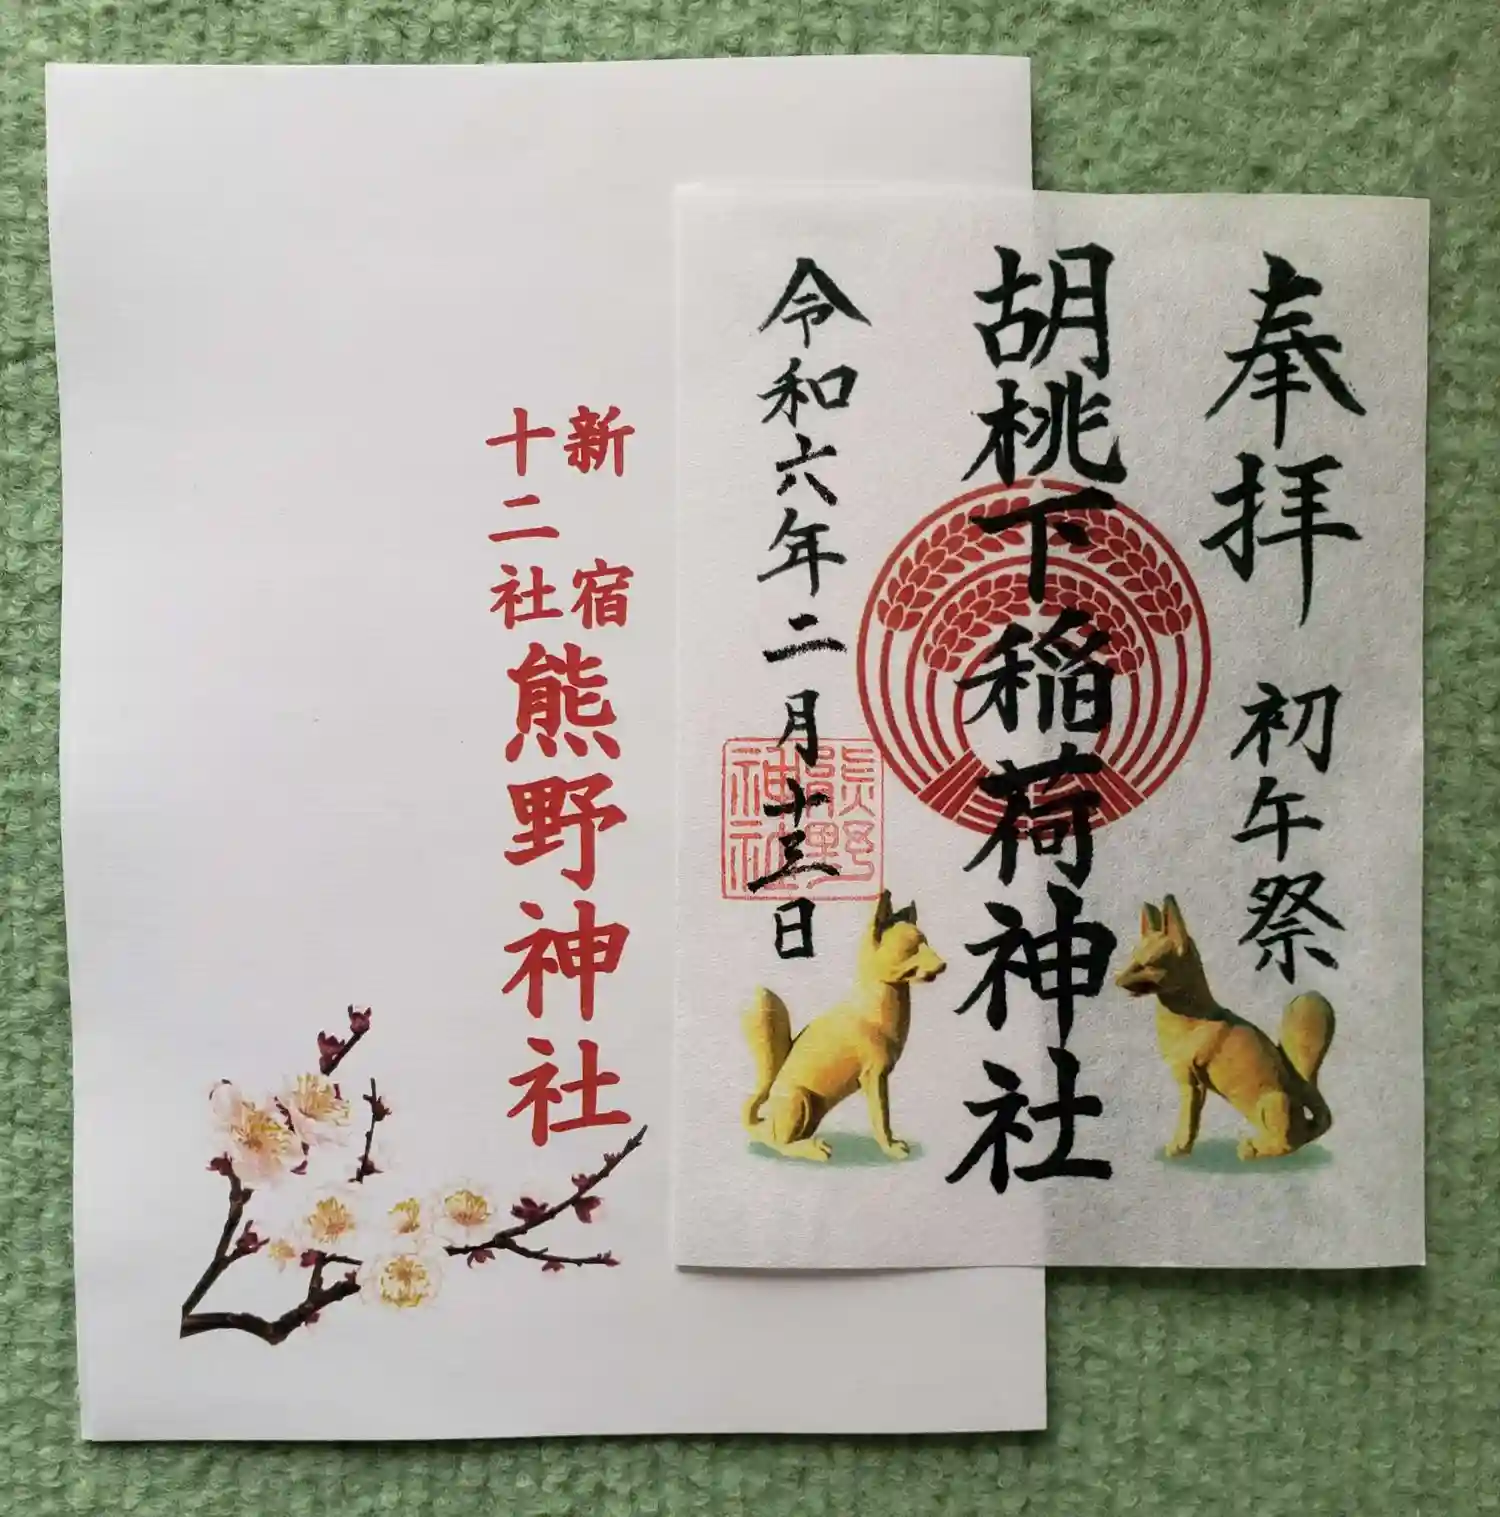 奉拝 初午祭
胡桃下稲荷神社
令和六年二月十三日
熊野
神社
新宿
十二社
熊野神社